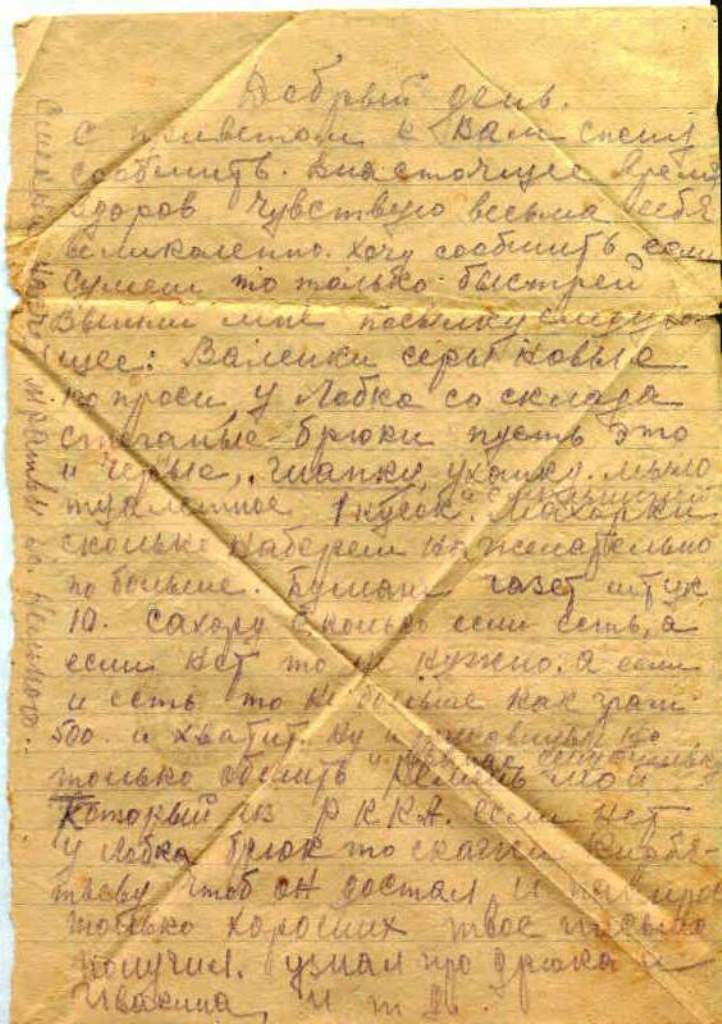 Добрый день.
с приветом к Вам спешу
сообщить. Внасточщее время
здоров чувствую весьма себя
великалепно. хочу сообщить если
сумеш то только быстрей
вышли мне посылку следую-
щее: Валенки серы новые
но проси у Лобка со склада
стеганые брюки пусть это
и черые, шапку ушанку. мыло
туалетное 1 кусок. Махорки
сколько наберем но желательно
по больше. Бумаги газет штук
10. сахору сколько если есть, а
если нет то не нужно. а если
и есть то не больше как грам
500. и хватит. Ну и
только обшить ремень мой
который из РККА. если нет
у Лобка брюк то скажи
чтоб он достал, и
только хороших твое письмо
получил. узнал про дрюка и
Ивасина, и т дъ.